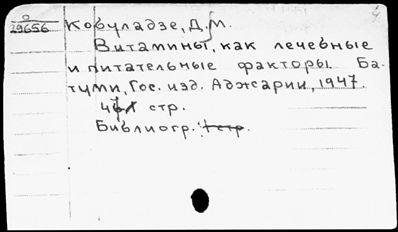 29656
Ковуладзе, Д. М.
Витамины, как лечебные
и питательные факторы. Ба-
туми, Гос. изд. Аджарии, 1947.
стр.
Библиогр.: